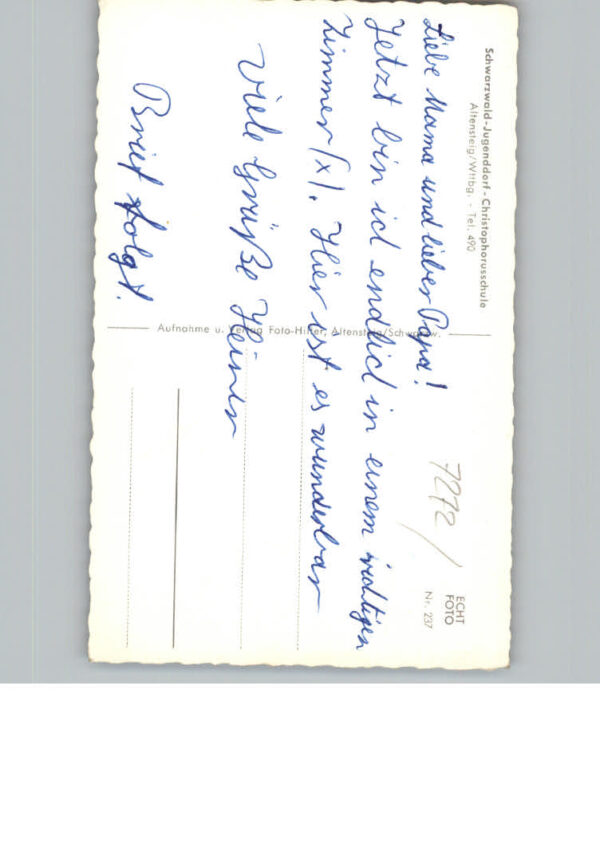 Schwarzwald-Jugenddorf-Christophorusschule
Altensteig/Wttbg. - Tel. 490
ECHT
FOTO
Nr. 237
7272/
Liebe Mama und lieber Papa!
Jetzt bin ich endlich in einem richtigen
Zimmer (x). Hier ist es wunderbar
Viele Grüße Heiner
Brief folgt.
Aufnahme u. Verlag Foto-Hiller, Altensteig/Schwarzw.